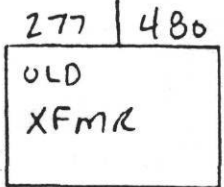 277 480
OLD
XFMR